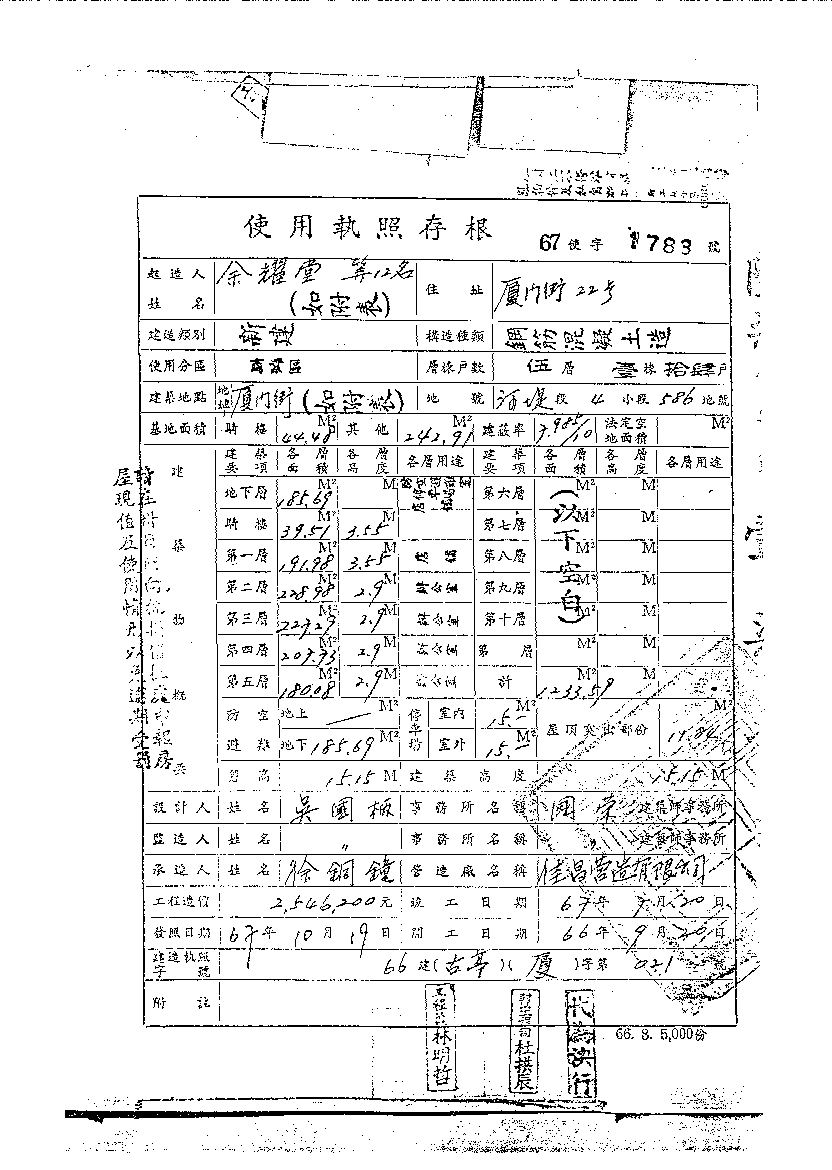 使用執照存根
67使字 1783 號
起造人姓名 余耀堂 等12名 (如附表) 住址 厦门街22号
建造類別 新建 構造種類 鋼筋混凝土造
使用分區 商業區 層棟戶數 伍層 壹棟 拾肆戶
建築地點 地址 厦门街(如附表) 地號 河堤段 4 小段 586 地號
基地面積 騎樓 44.48 M² 其他 242.91 M² 建蔽率 7.985/10 法定空地面積 M²
建築物概要
建築要項 各層面積 各層高度 各層用途 建築要項 各層面積 各層高度 各層用途
地下層 185.69 M² M 第六層 M² M
騎樓 39.51 M² 3.55 M 第七層 M² M
第一層 191.98 M² 3.55 M 店舖 第八層 M² M
第二層 228.98 M² 2.9 M 第九層 M² M
第三層 227.29 M² 2.9 M 第十層 M² M
第四層 207.93 M² 2.9 M 第 層 M² M
第五層 180.08 M² 2.9 M 計 1233.59 M² M
(以下空白)
防空避難 地上 M² 停車場 室內 15.- M² 屋頂突出部份 M²
地下 185.69 M² 室外 15.- M²
簷高 15.15 M 建築高度 15.15 M
設計人 姓名 吳國柄 事務所名稱 國榮 建築師事務所
監造人 姓名 〃 事務所名稱 〃 建築師事務所
承造人 姓名 徐銅鐘 營造廠名稱 佳昌营造有限公司
工程造價 2,546,200元 竣工日期 67年 9月 20日
發照日期 67年 10月 19日 開工日期 66年 9月 20日
建造執照字號 66建(古亭)(厦)字第 021 號
附註
林明哲
杜拱辰
代為決行
66. 8. 5,000份